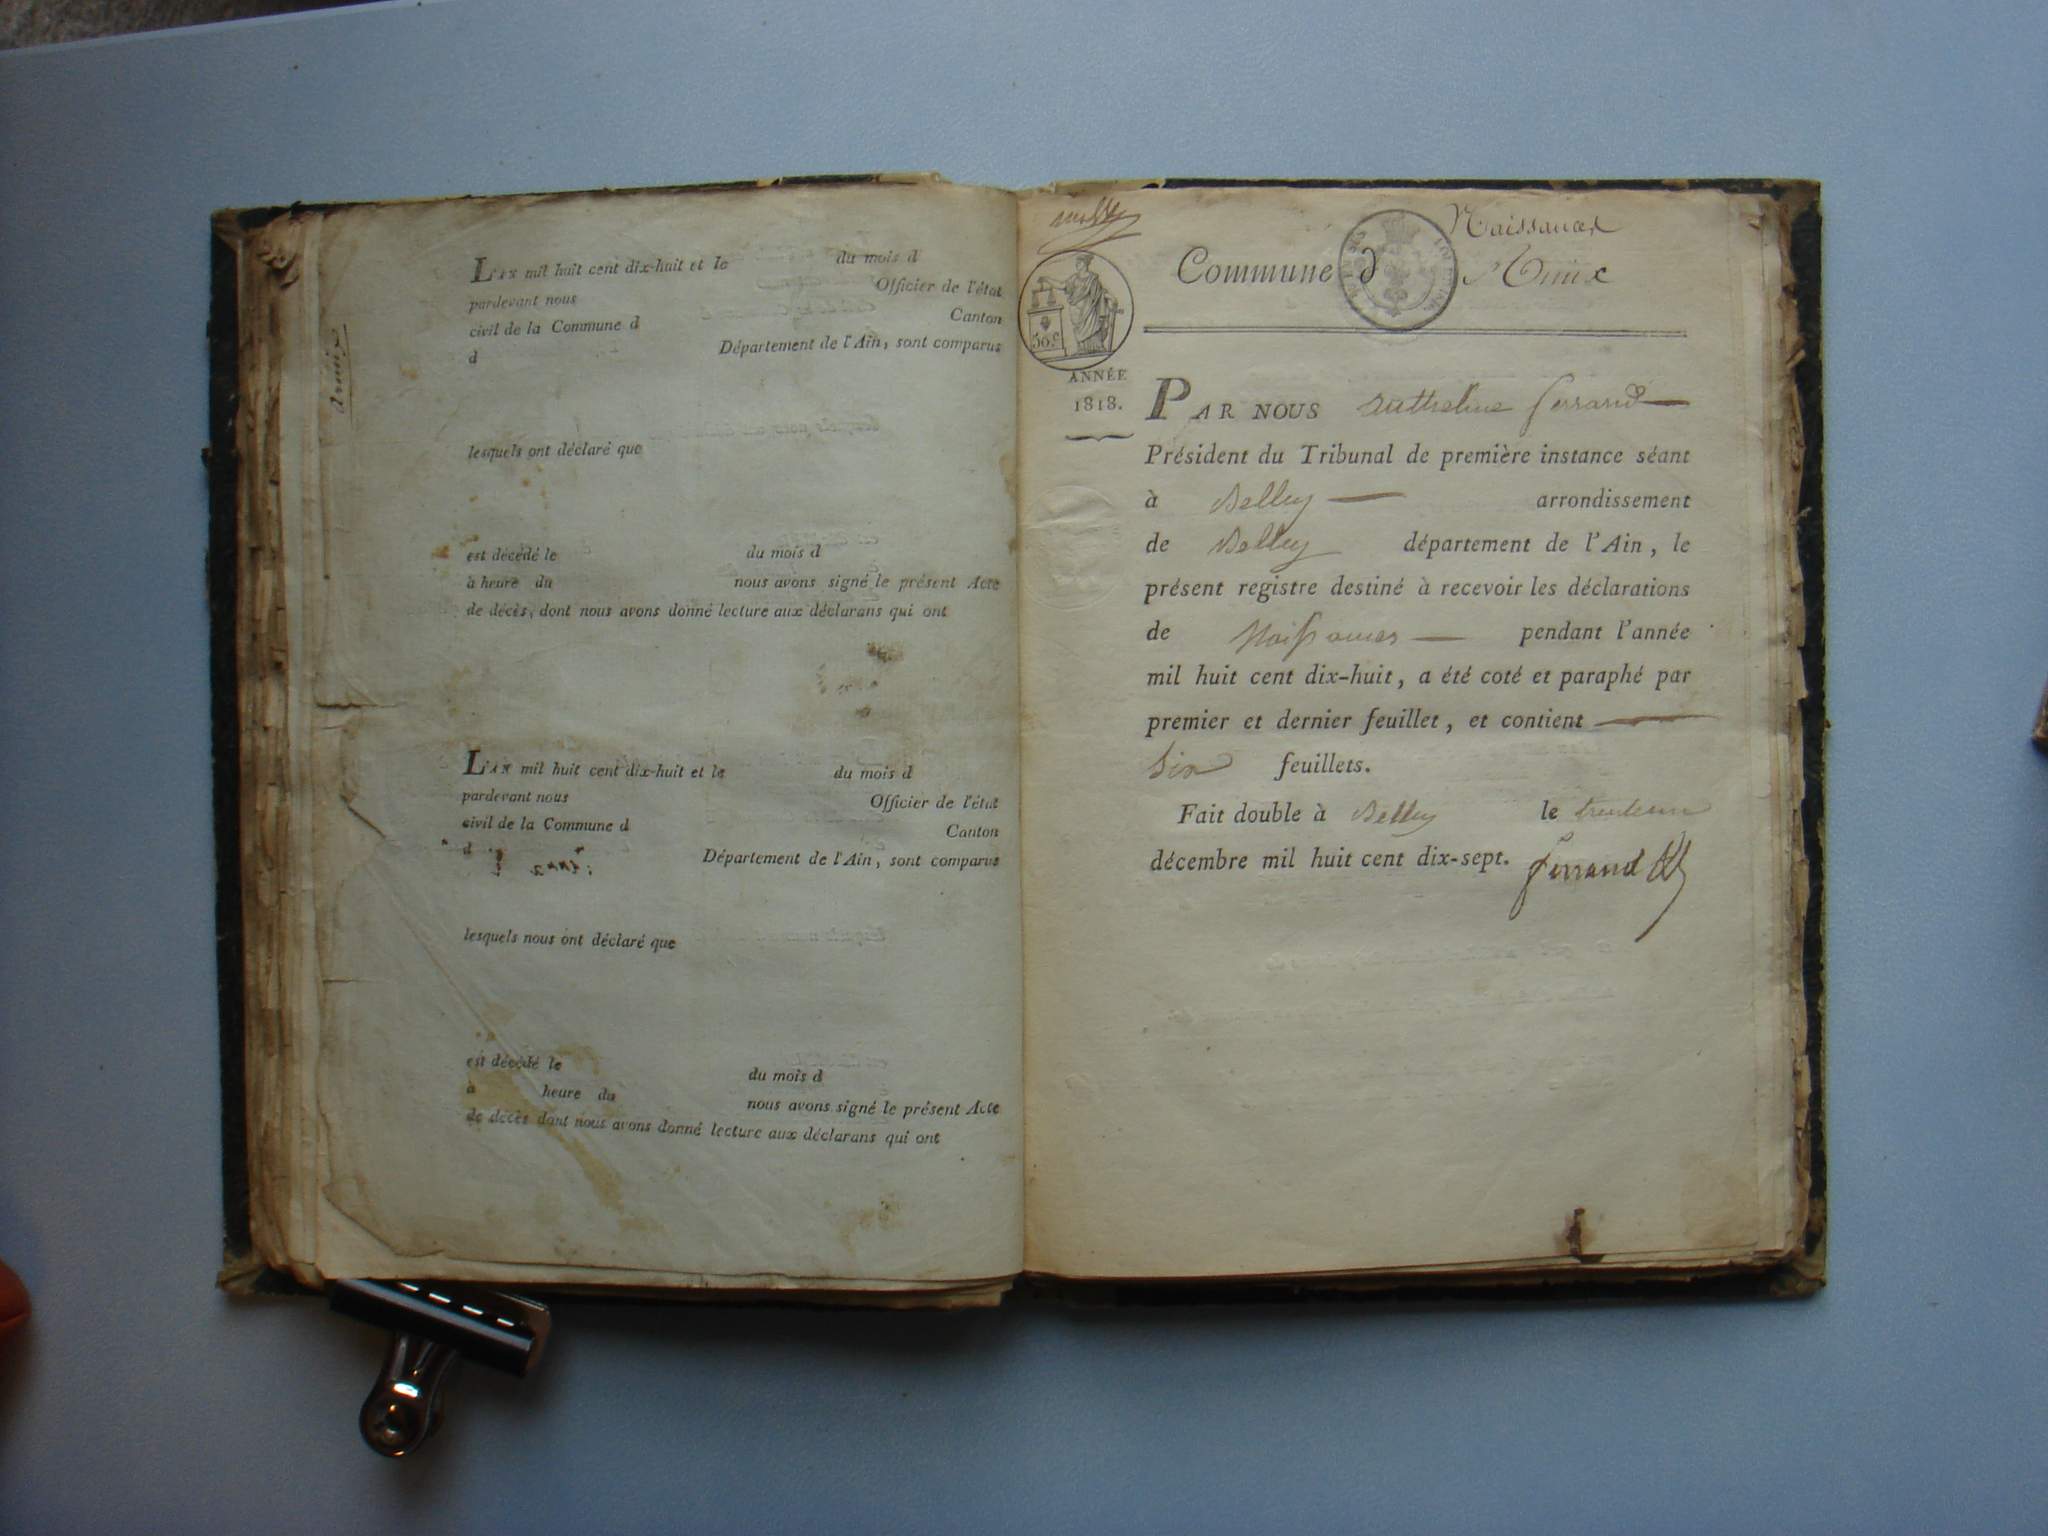 L'AN mil huit cent dix-huit et le du mois d
pardevant nous Officier de l'état
civil de la Commune d Canton
d Département de l'Ain, sont comparus
lesquels ont déclaré que
est décédé le du mois d
à heure du nous avons signé le présent Acte
de décès, dont nous avons donné lecture aux déclarans qui ont
L'AN mil huit cent dix-huit et le du mois d
pardevant nous Officier de l'état
civil de la Commune d Canton
d Département de l'Ain, sont comparus
lesquels nous ont déclaré que
est décédé le du mois d
à heure du nous avons signé le présent Acte
de décès dont nous avons donné lecture aux déclarans qui ont
Naissances
Commune d
50.c
ANNÉE
1818.
PAR NOUS Anthelme ferrand
Président du Tribunal de première instance séant
à Belley arrondissement
de Belley département de l'Ain, le
présent registre destiné à recevoir les déclarations
de Naissances pendant l'année
mil huit cent dix-huit, a été coté et paraphé par
premier et dernier feuillet, et contient
Six feuillets.
Fait double à Belley le trente un
décembre mil huit cent dix-sept. ferrand